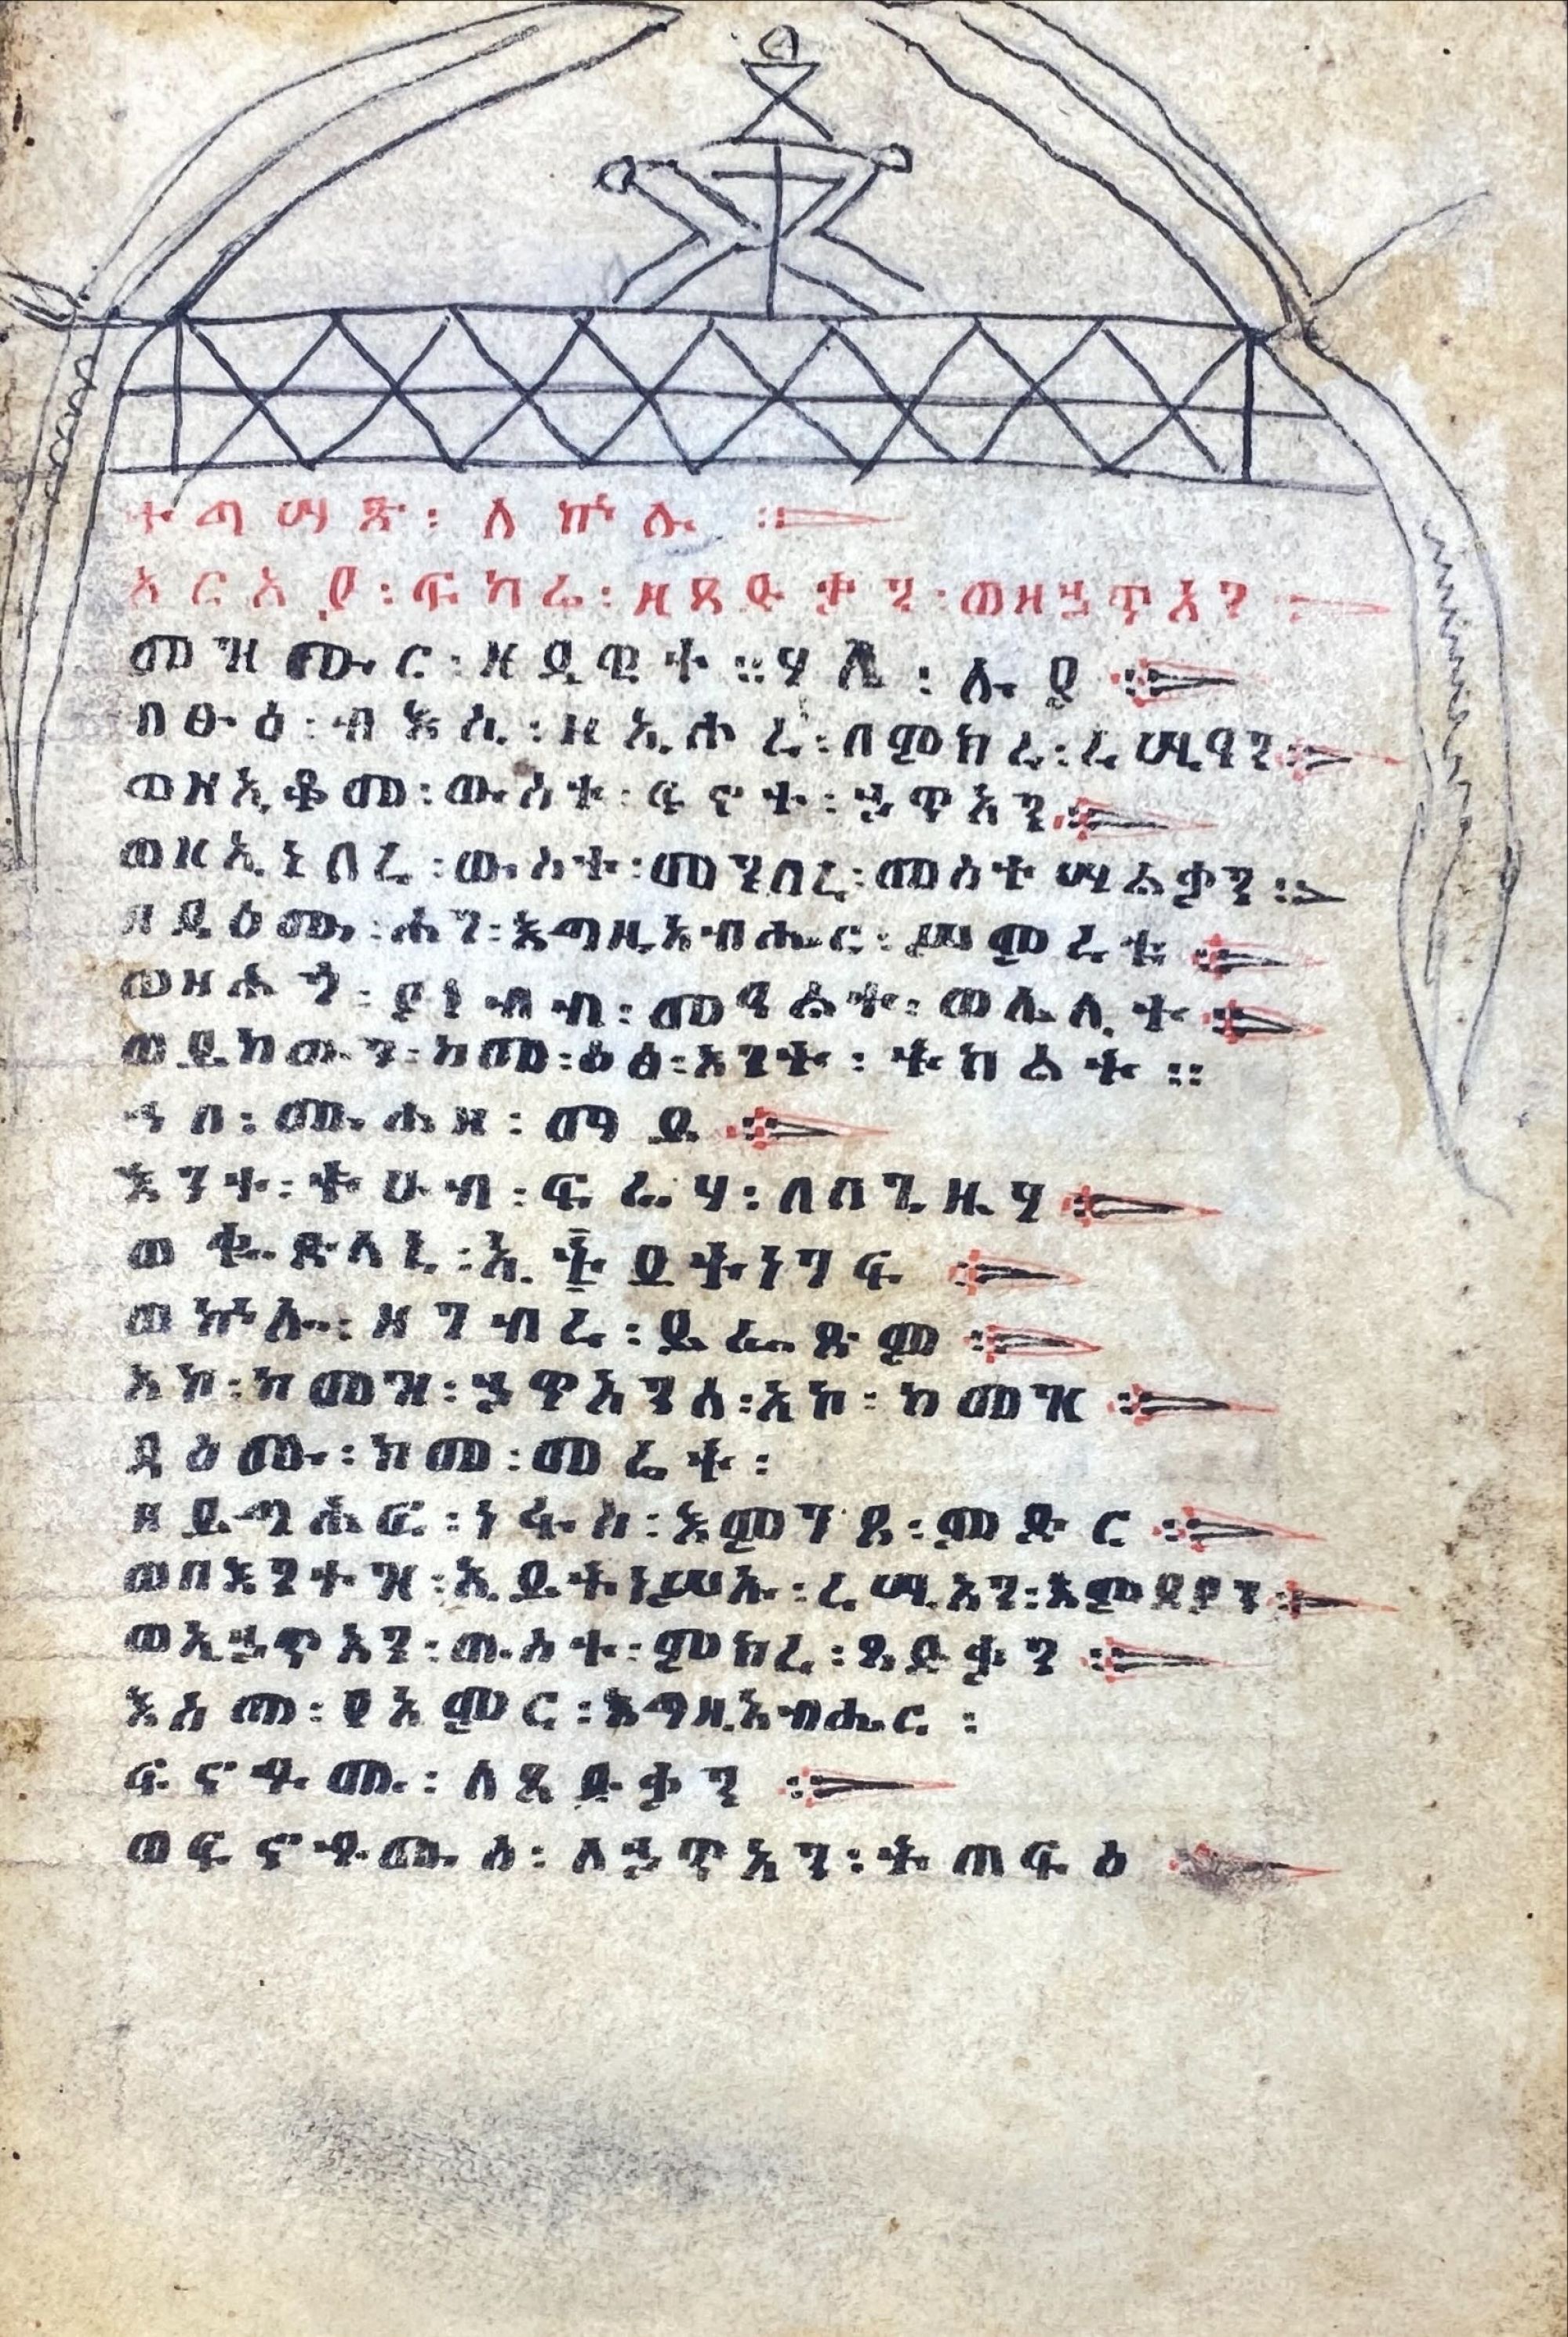 ተጣማጽ፡ ለኵሉ ።
አርአያ፡ፍካሬ፡ዘጻድቃን፡ወዘኃጥአን
መዝሙር፡ዘዳዊት ።ሃሌ፡ሉያ ።
በፀዕ፡ብእሲ፡ዘኢሖረ፡በምክረ፡ረሢዓን።
ወዘኢቆመ፡ውስተ፡ፍኖተ፡ኃጥአን።
ወዘኢነበረ፡ውስተ፡መንበረ፡መስተሣልቃን ።
ዘዳዕሙ፡ሕገ፡እግዚአብሔር፡ሥምረቱ ።
ወዘሕጎ፡ያነብብ፡መዓልተ፡ወሌሊተ ።
ወይከውን፡ከመ፡ዕፅ፡እንተ፡ትክልት ።
ኀበ፡ሙሐዘ፡ማይ ።
እንተ፡ትሁብ፡ፍሬሃ፡ለበጊዜሃ ።
ወቈጽለኒ፡ኢትይትነገፍ ።
ወኵሎ፡ዘገብረ፡ይፌጽም ።
አኮ፡ከመዝ፡ኃጥአንሰ፡አኮ፡ከመዝ ።
ዳዕሙ፡ከመ፡መሬት፡
ዘይግሕፎ፡ነፋስ፡እምገጸ፡ምድር ።
ወበእንተዝ፡ኢይትነሥኡ፡ረሢአን፡እምደይን።
ወኢኃጥአን፡ውስተ፡ምክረ፡ጻድቃን ።
እስመ፡ያአምር፡እግዚአብሔር ፡
ፍኖቶሙ፡ለጻድቃን ።
ወፍኖቶሙሰ፡ለኃጥአን፡ትጠፍዕ